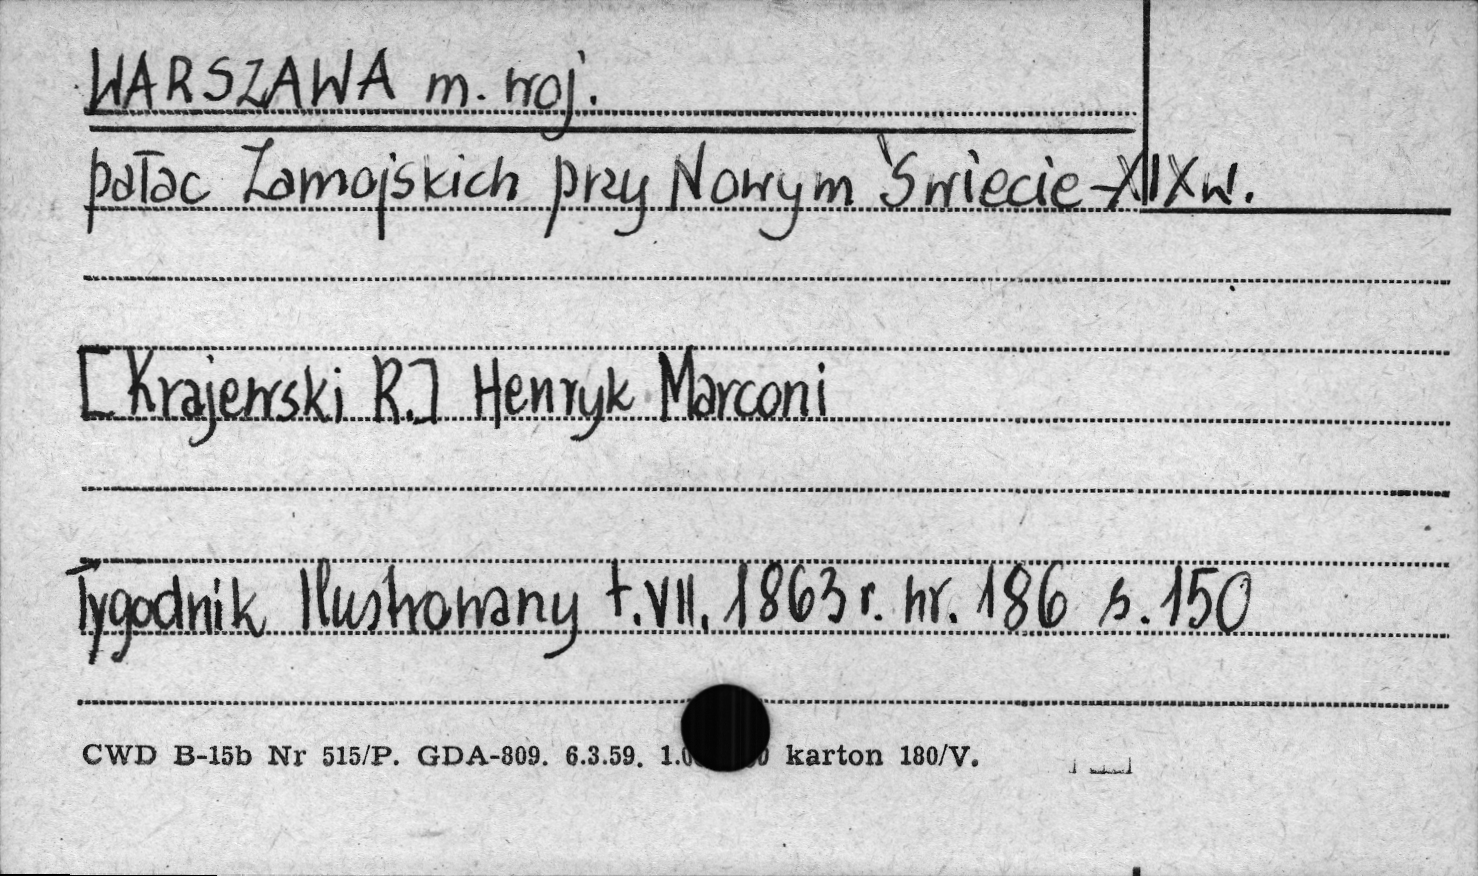 WARSZAWA m. woj.
pałac Zamojskich przy Nowym Świecie - XIX w.
[Krajewski R.] Henryk Marconi
Tygodnik Ilustrowany t. VII. 1863 r. nr. 186 s. 150
CWD B-15b Nr 515/P. GDA-809. 6.3.59. karton 180/V.